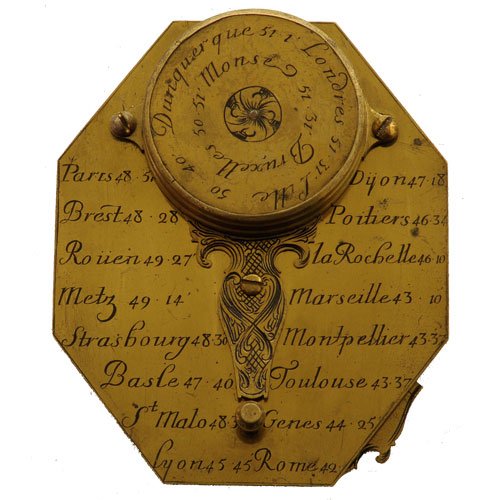 Dunquerque 51 1' Londres 51 31
Lille 50 40
Monse 50 51' Bruxelles 51 31
Paris 48 · 51 Dyon 47 · 18
Brest 48 · 28 Poitiers 46 · 34
Roüen 49 · 27 la Rochelle 46 · 10
Metz 49 · 14' Marseille 43 · 10
Strasbourg 48 · 30 Montpellier 43 · 37
Basle 47 · 40 Toulouse 43 · 37
St Malo 48 · 3 Genes 44 · 25
Lyon 45 45 Rome 42 ·